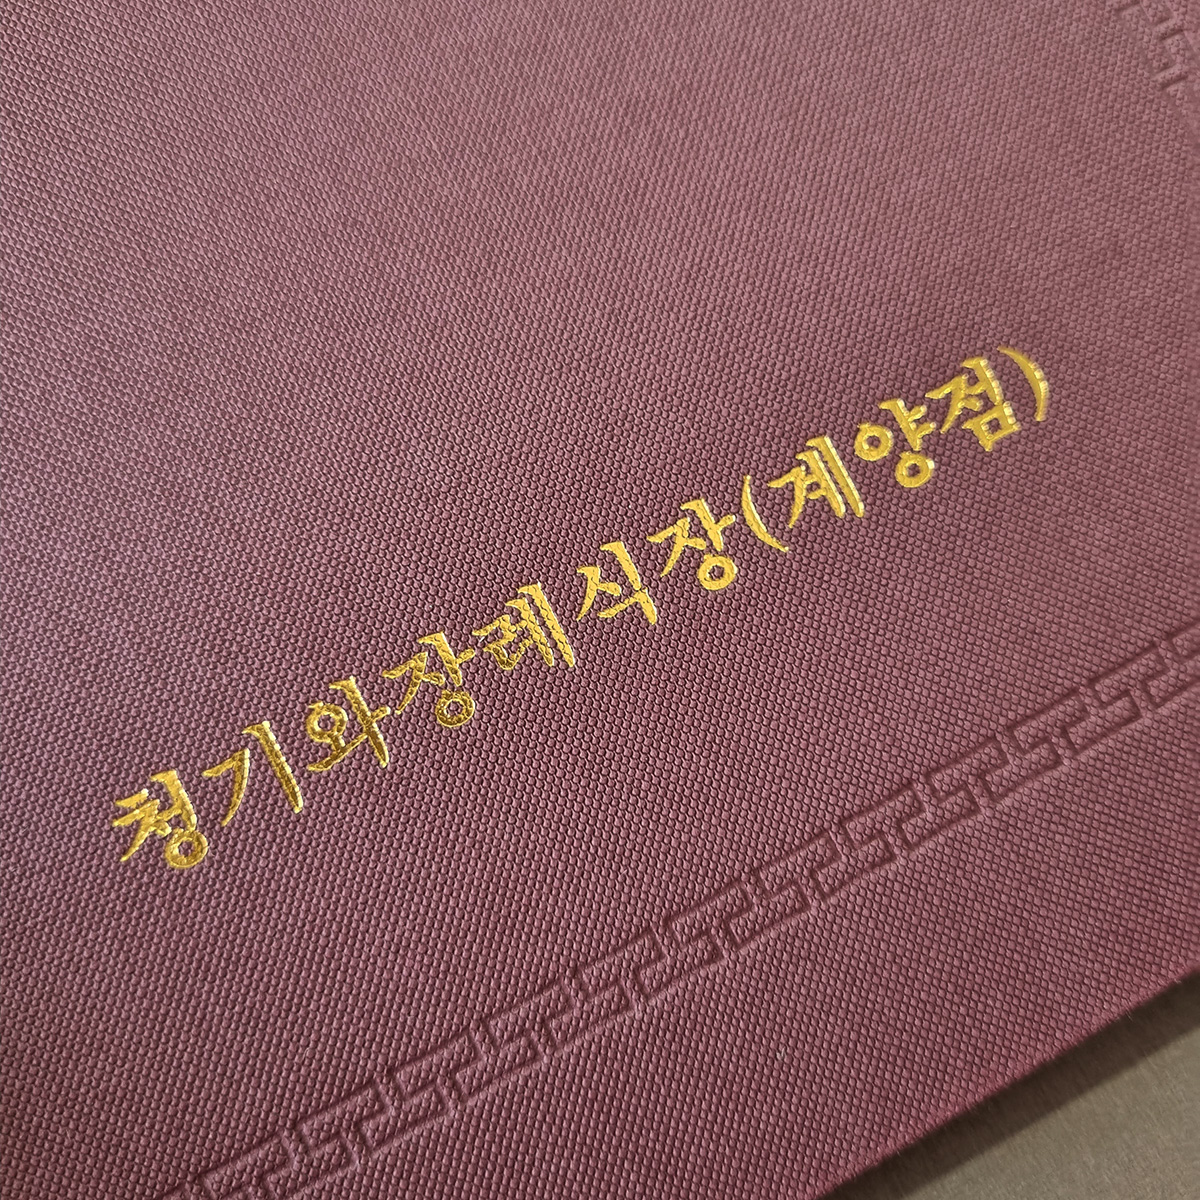 청기와장례식장(계양점)